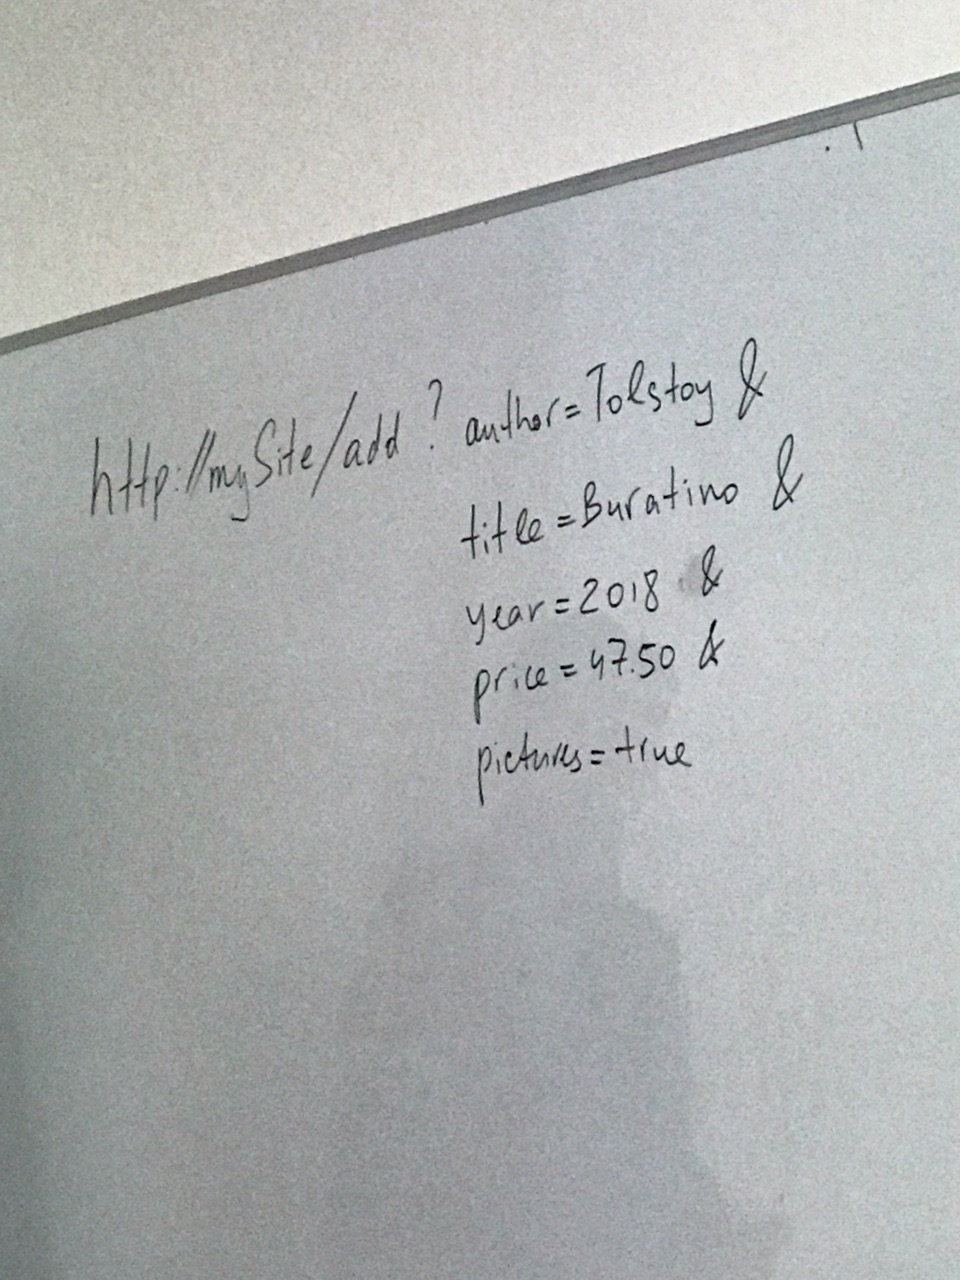 http://mySite/add? author=Tolstoy &
title=Buratino &
year=2018 &
price=47.50 &
pictures=true